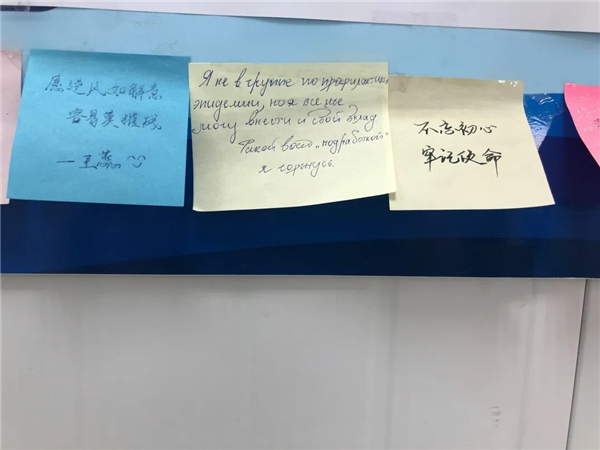 愿逆风如解意
容易莫摧残
—王燕
Я не в группе по профилактике
эпидемии, но я все же
могу внести и свой вклад
Такой „подработкой"
я горжусь.
不忘初心
牢记使命